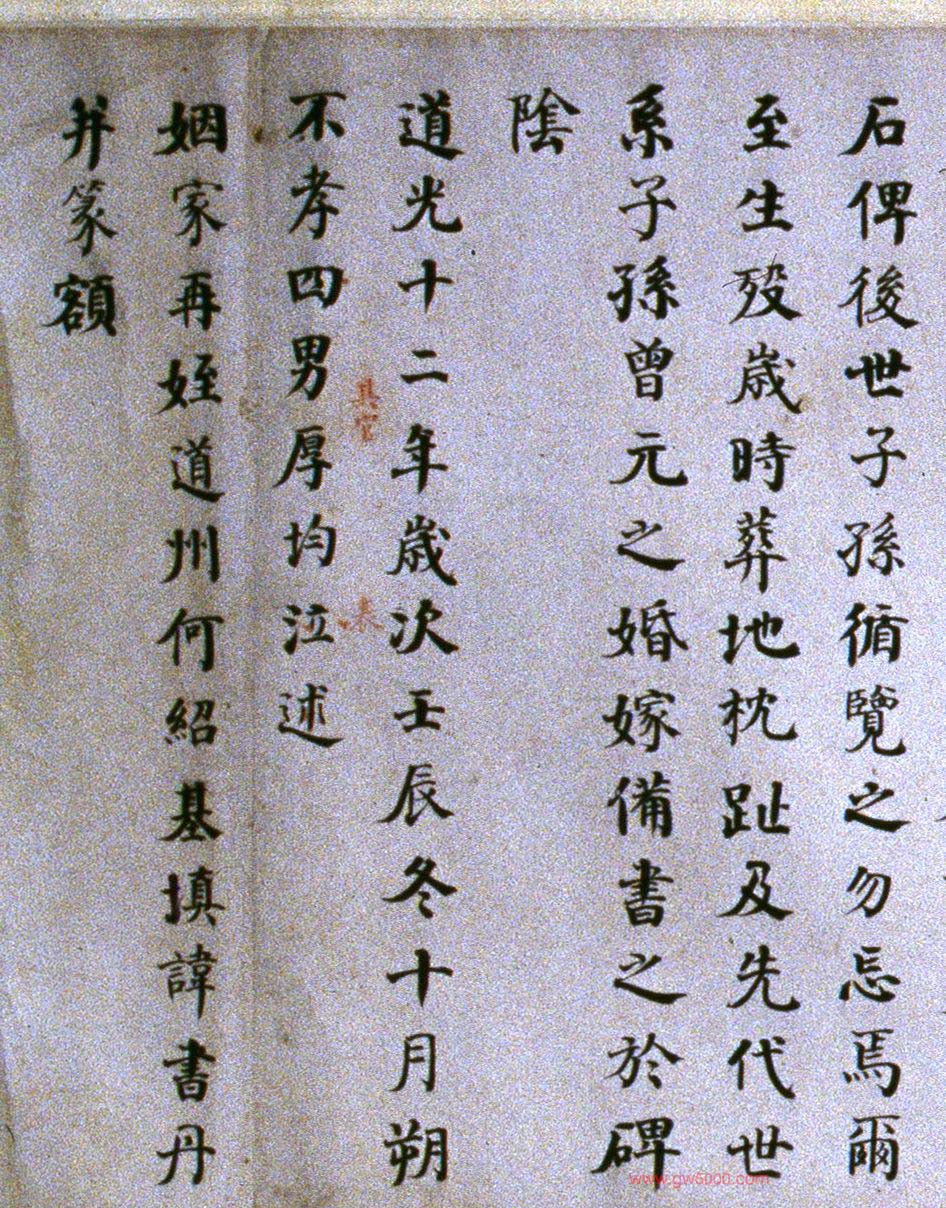 石俾後世子孫循覽之勿忘焉爾
至生歿歲時葬地枕趾及先代世
系子孫曾元之婚嫁備書之於碑
陰
道光十二年歲次壬辰冬十月朔
不孝四男厚均泣述
姻家再姪道州何紹基填諱書丹
并篆額
www.gw5000.com